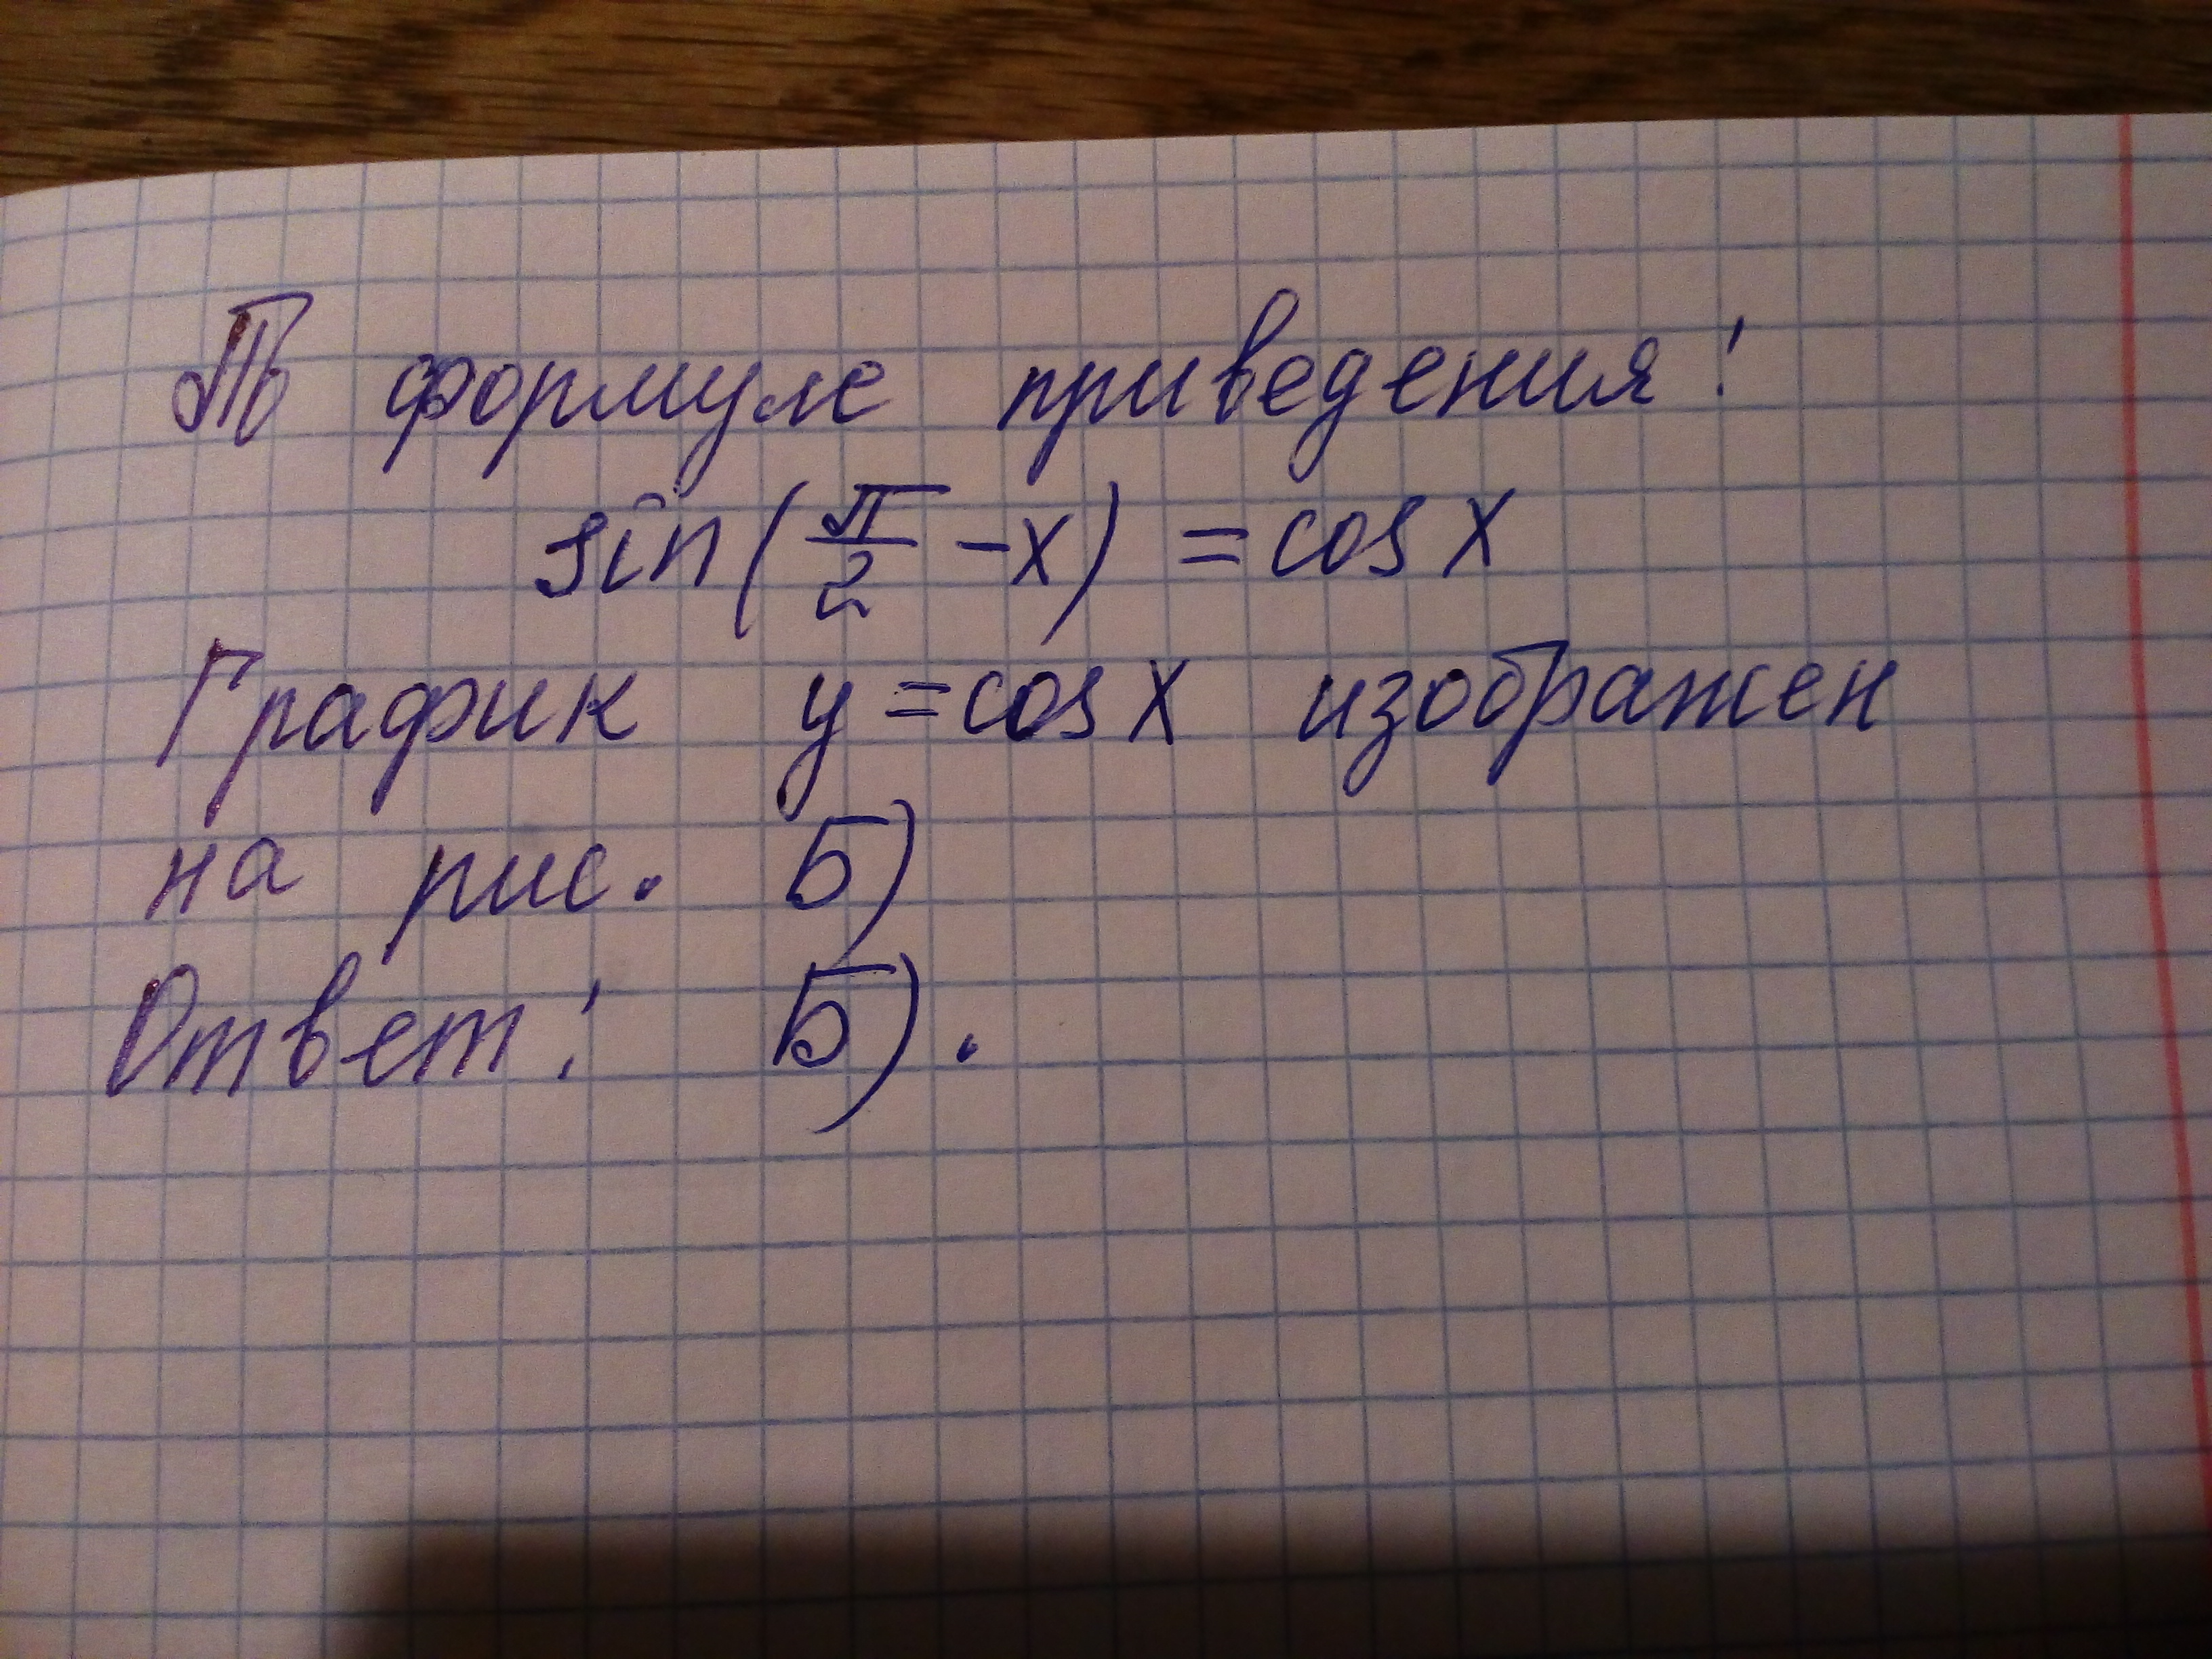 По формуле приведения:
sin(π/2 -x) = cos x
График y = cos x изображен
на рис. Б)
Ответ: Б).